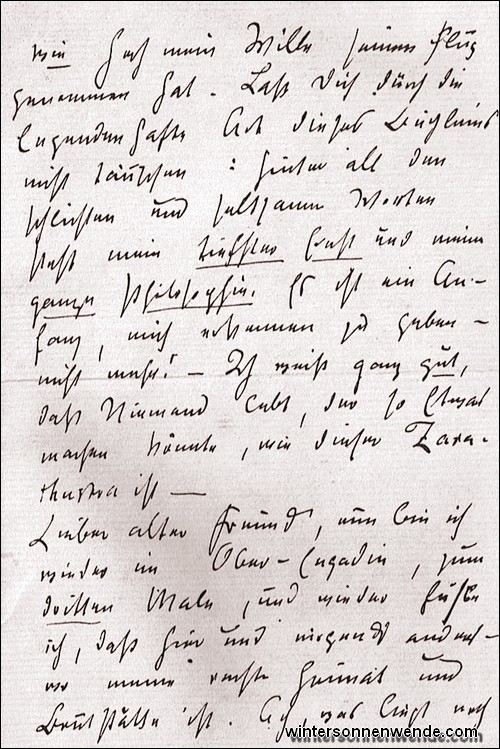 wie hoch mein Wille seinen Flug
genommen hat. Laß Dich durch die
legendenhafte Art dieses Büchleins
nicht täuschen: hinter all den
schlichten und seltsamen Worten
steht mein tiefster Ernst und meine
ganze Philosophie. Es ist ein An-
fang, mich erkennen zu geben –
nicht mehr! – Ich weiß ganz gut,
daß Niemand lebt, der so Etwas
machen könnte, wie dieser Zara-
thustra ist –
Lieber alter Freund, nun bin ich
wieder im Ober-Engadin, zum
dritten Male, und wieder fühle
ich, daß hier und nirgends anders-
wo meine rechte Heimat und
Brutstätte ist. Ach, was liegt noch
wintersonnenwende.com